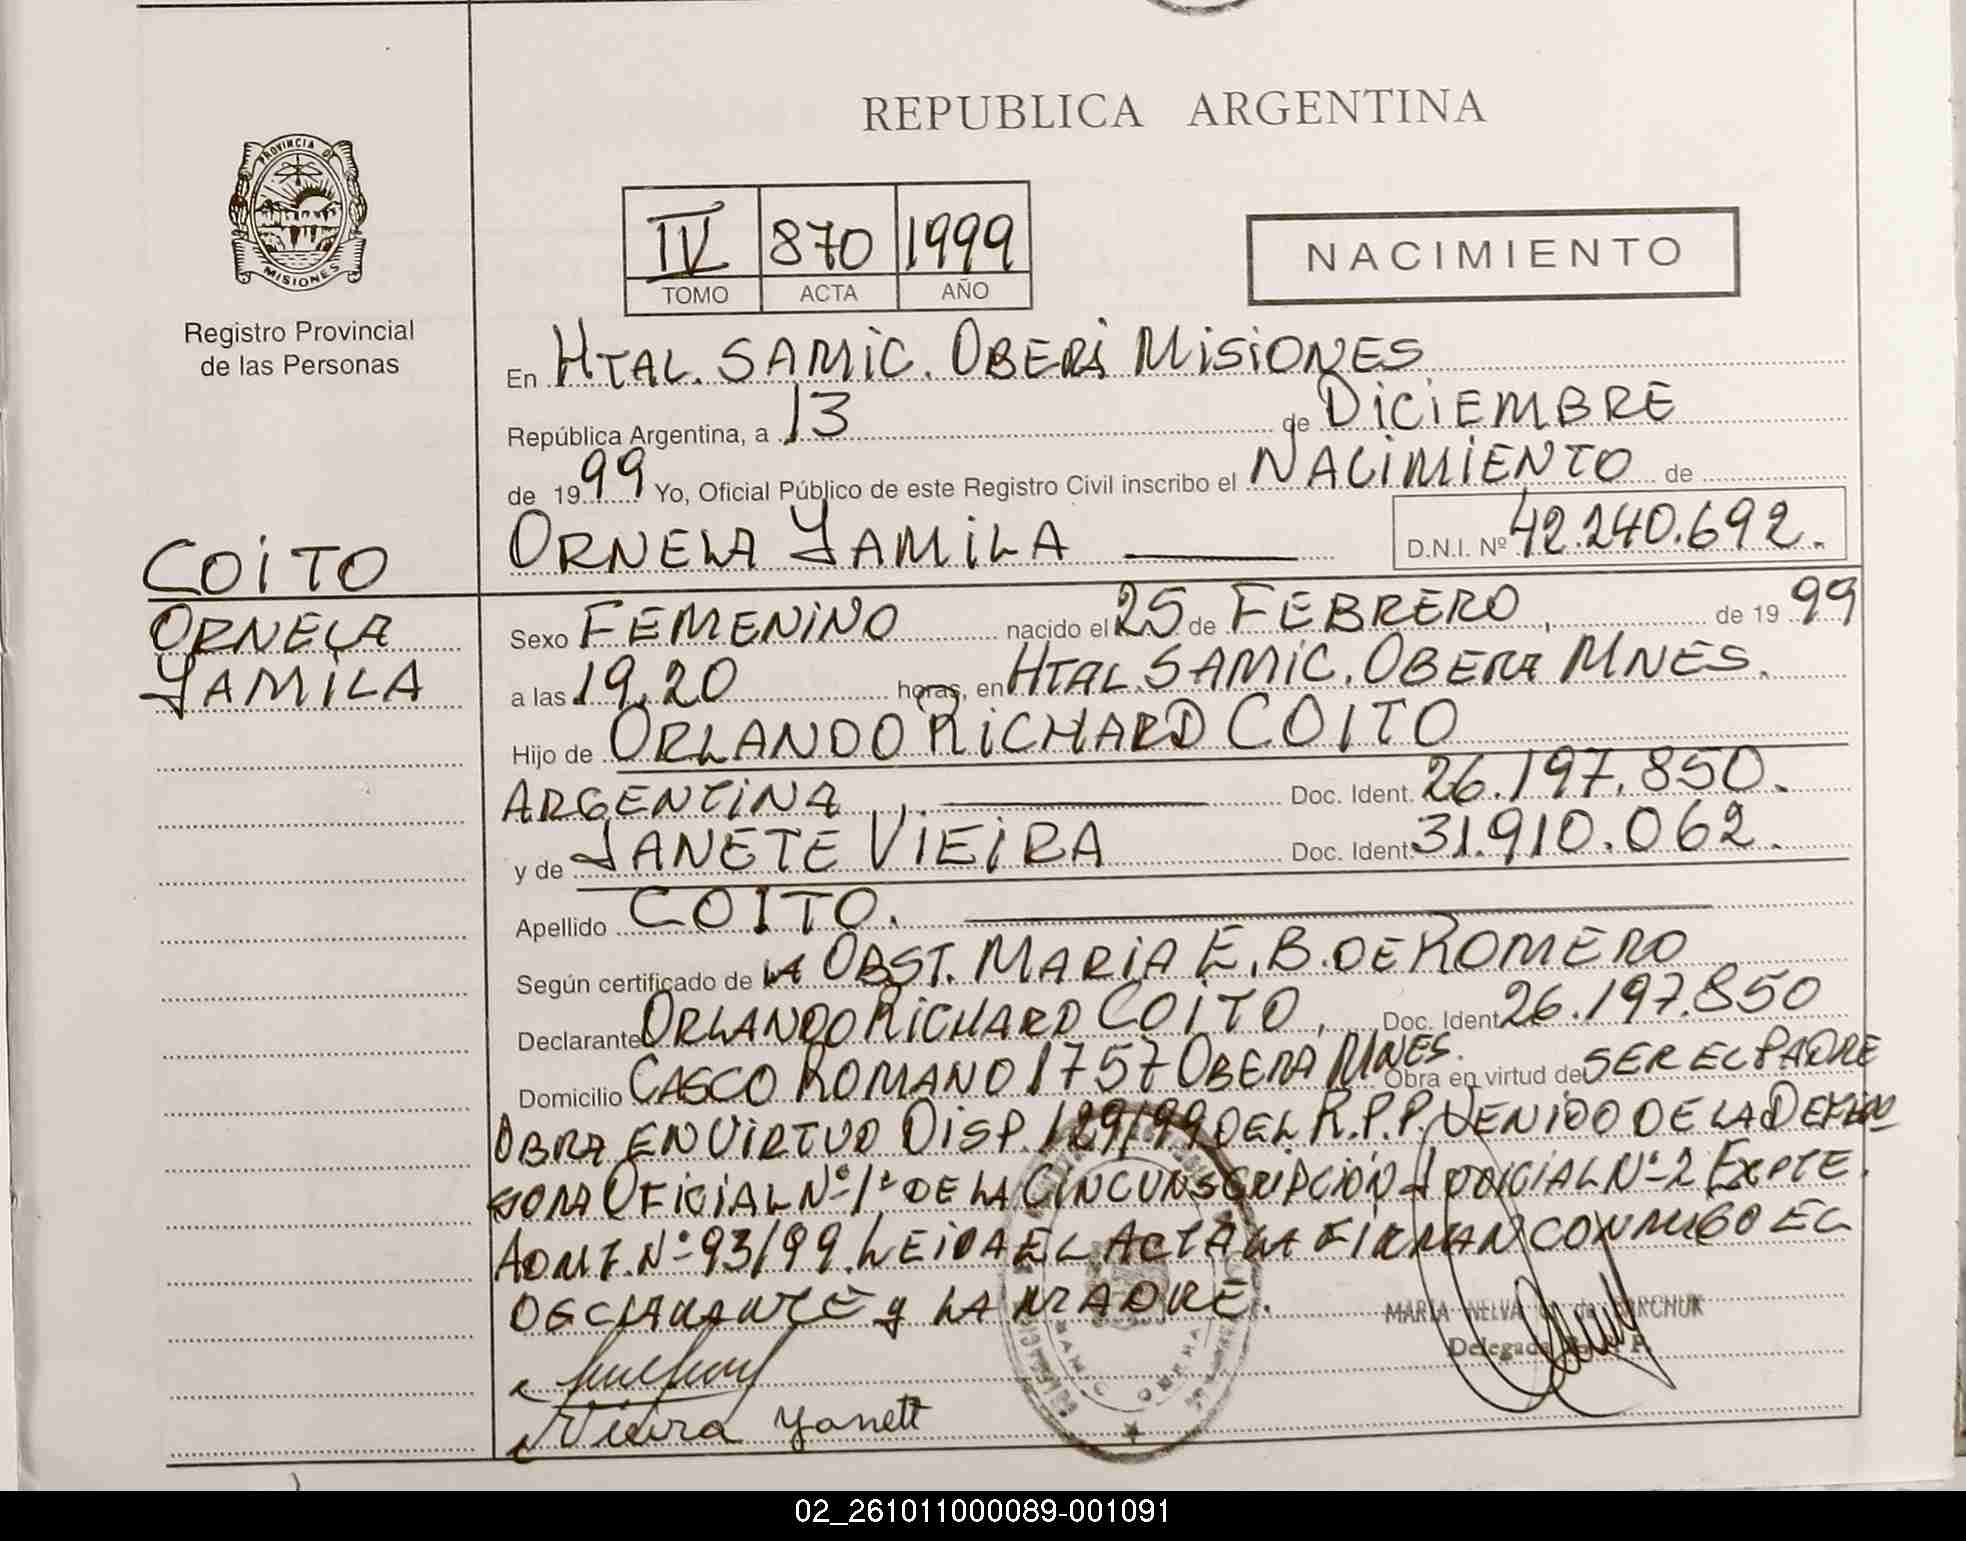 REPUBLICA ARGENTINA
PROVINCIA DE
MISIONES
Registro Provincial
de las Personas
IV 870 1999
TOMO ACTA AÑO
NACIMIENTO
En HTAL. SAMIC. OBERÁ MISIONES
República Argentina, a 13 de DICIEMBRE
de 1999 Yo, Oficial Público de este Registro Civil inscribo el NACIMIENTO de
ORNELA YAMILA D.N.I. Nº 42.240.692.
COITO
ORNELA
YAMILA
Sexo FEMENINO nacido el 25 de FEBRERO, de 1999
a las 19,20 horas, en HTAL. SAMIC. OBERA MNES.
Hijo de ORLANDO RICHARD COITO
ARGENTINA, Doc. Ident. 26.197.850.
y de JANETE VIEIRA Doc. Ident. 31.910.062.
Apellido COITO.
Según certificado de LA OBST. MARIA E. B. DE ROMERO
Declarante ORLANDO RICHARD COITO, Doc. Ident 26.197.850
Domicilio CASCO ROMANO 1757 OBERA MNES. Obra en virtud de SER EL PADRE
OBRA EN VIRTUD DISP. 129/99 DEL R.P.P. VENIDO DE LA DEFEN
SORA OFICIAL Nº 1º DE LA CIRCUNSCRIPCIÓN JUDICIAL Nº 2 EXPTE.
ADM Nº 93/99. LEIDA EL ACTA LA FIRMAN CONMIGO EL
DECLARANTE y LA MADRE.
MARIA NELVA de
Delegada
Vieira Yanett
SAMIC OBERA
02_261011000089-001091